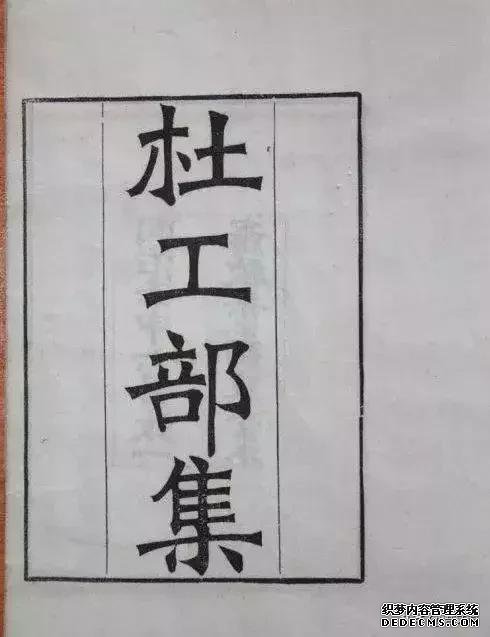 杜工部集
织梦内容管理系统
DEDECMS.COM